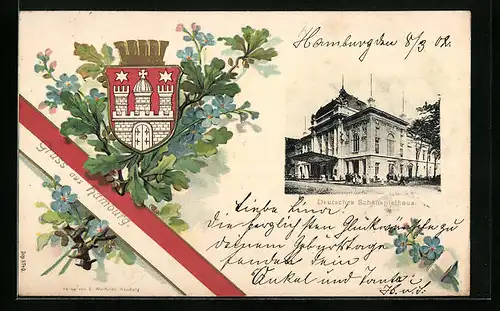 Hamburg den 8/3 02.
Gruss aus Hamburg.
Deutsches Schauspielhaus.
Liebe Linde.
Die herzlichsten Glückwünsche zu
deinem Geburtstage
senden dein
Onkel und Tante